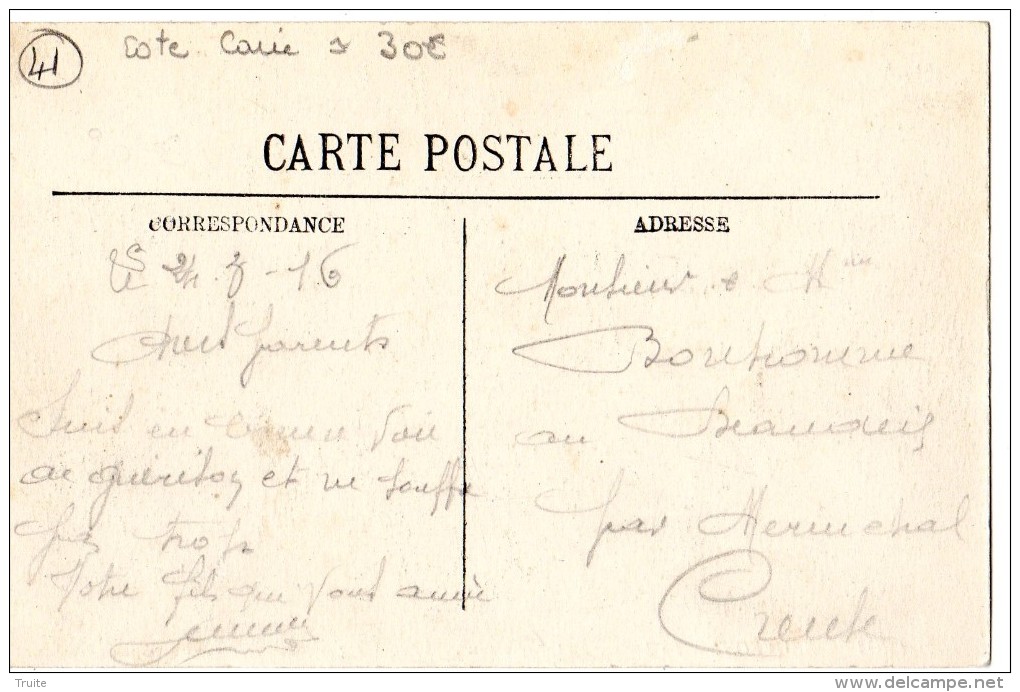 41 cote Carie 30€
CARTE POSTALE
CORRESPONDANCE
Le 24.7-16
parents
Suis en bonne voie
de guérison et ne souffre
pas trop
Votre fils qui vous aime
ADRESSE
Monsieur & Mme
Bonhomme
au
par Mérinchal
Creuse
Truite
delcampe.net